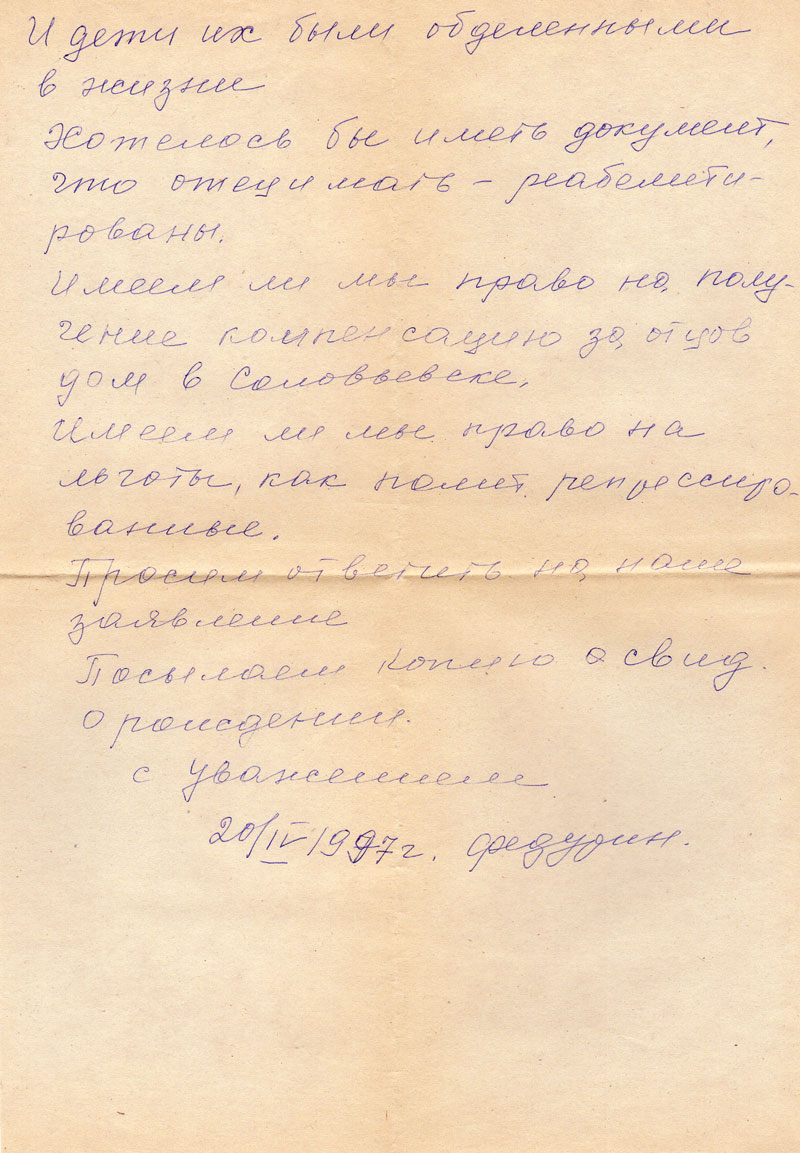 И дети их были обделенными
в жизни
Хотелось бы иметь документ,
что отец и мать - реабелити-
рованы.
Имеем ли мы право на полу-
чение компенсацию за отцов
дом в Соловьевске.
Имеем ли мы право на
льготы, как полит. репрессиро-
ванные.
Просим ответить на наше
заявление
Посылаем копию о свид.
о рождении.
с уважением
20/IV 1997 г. Федурин.